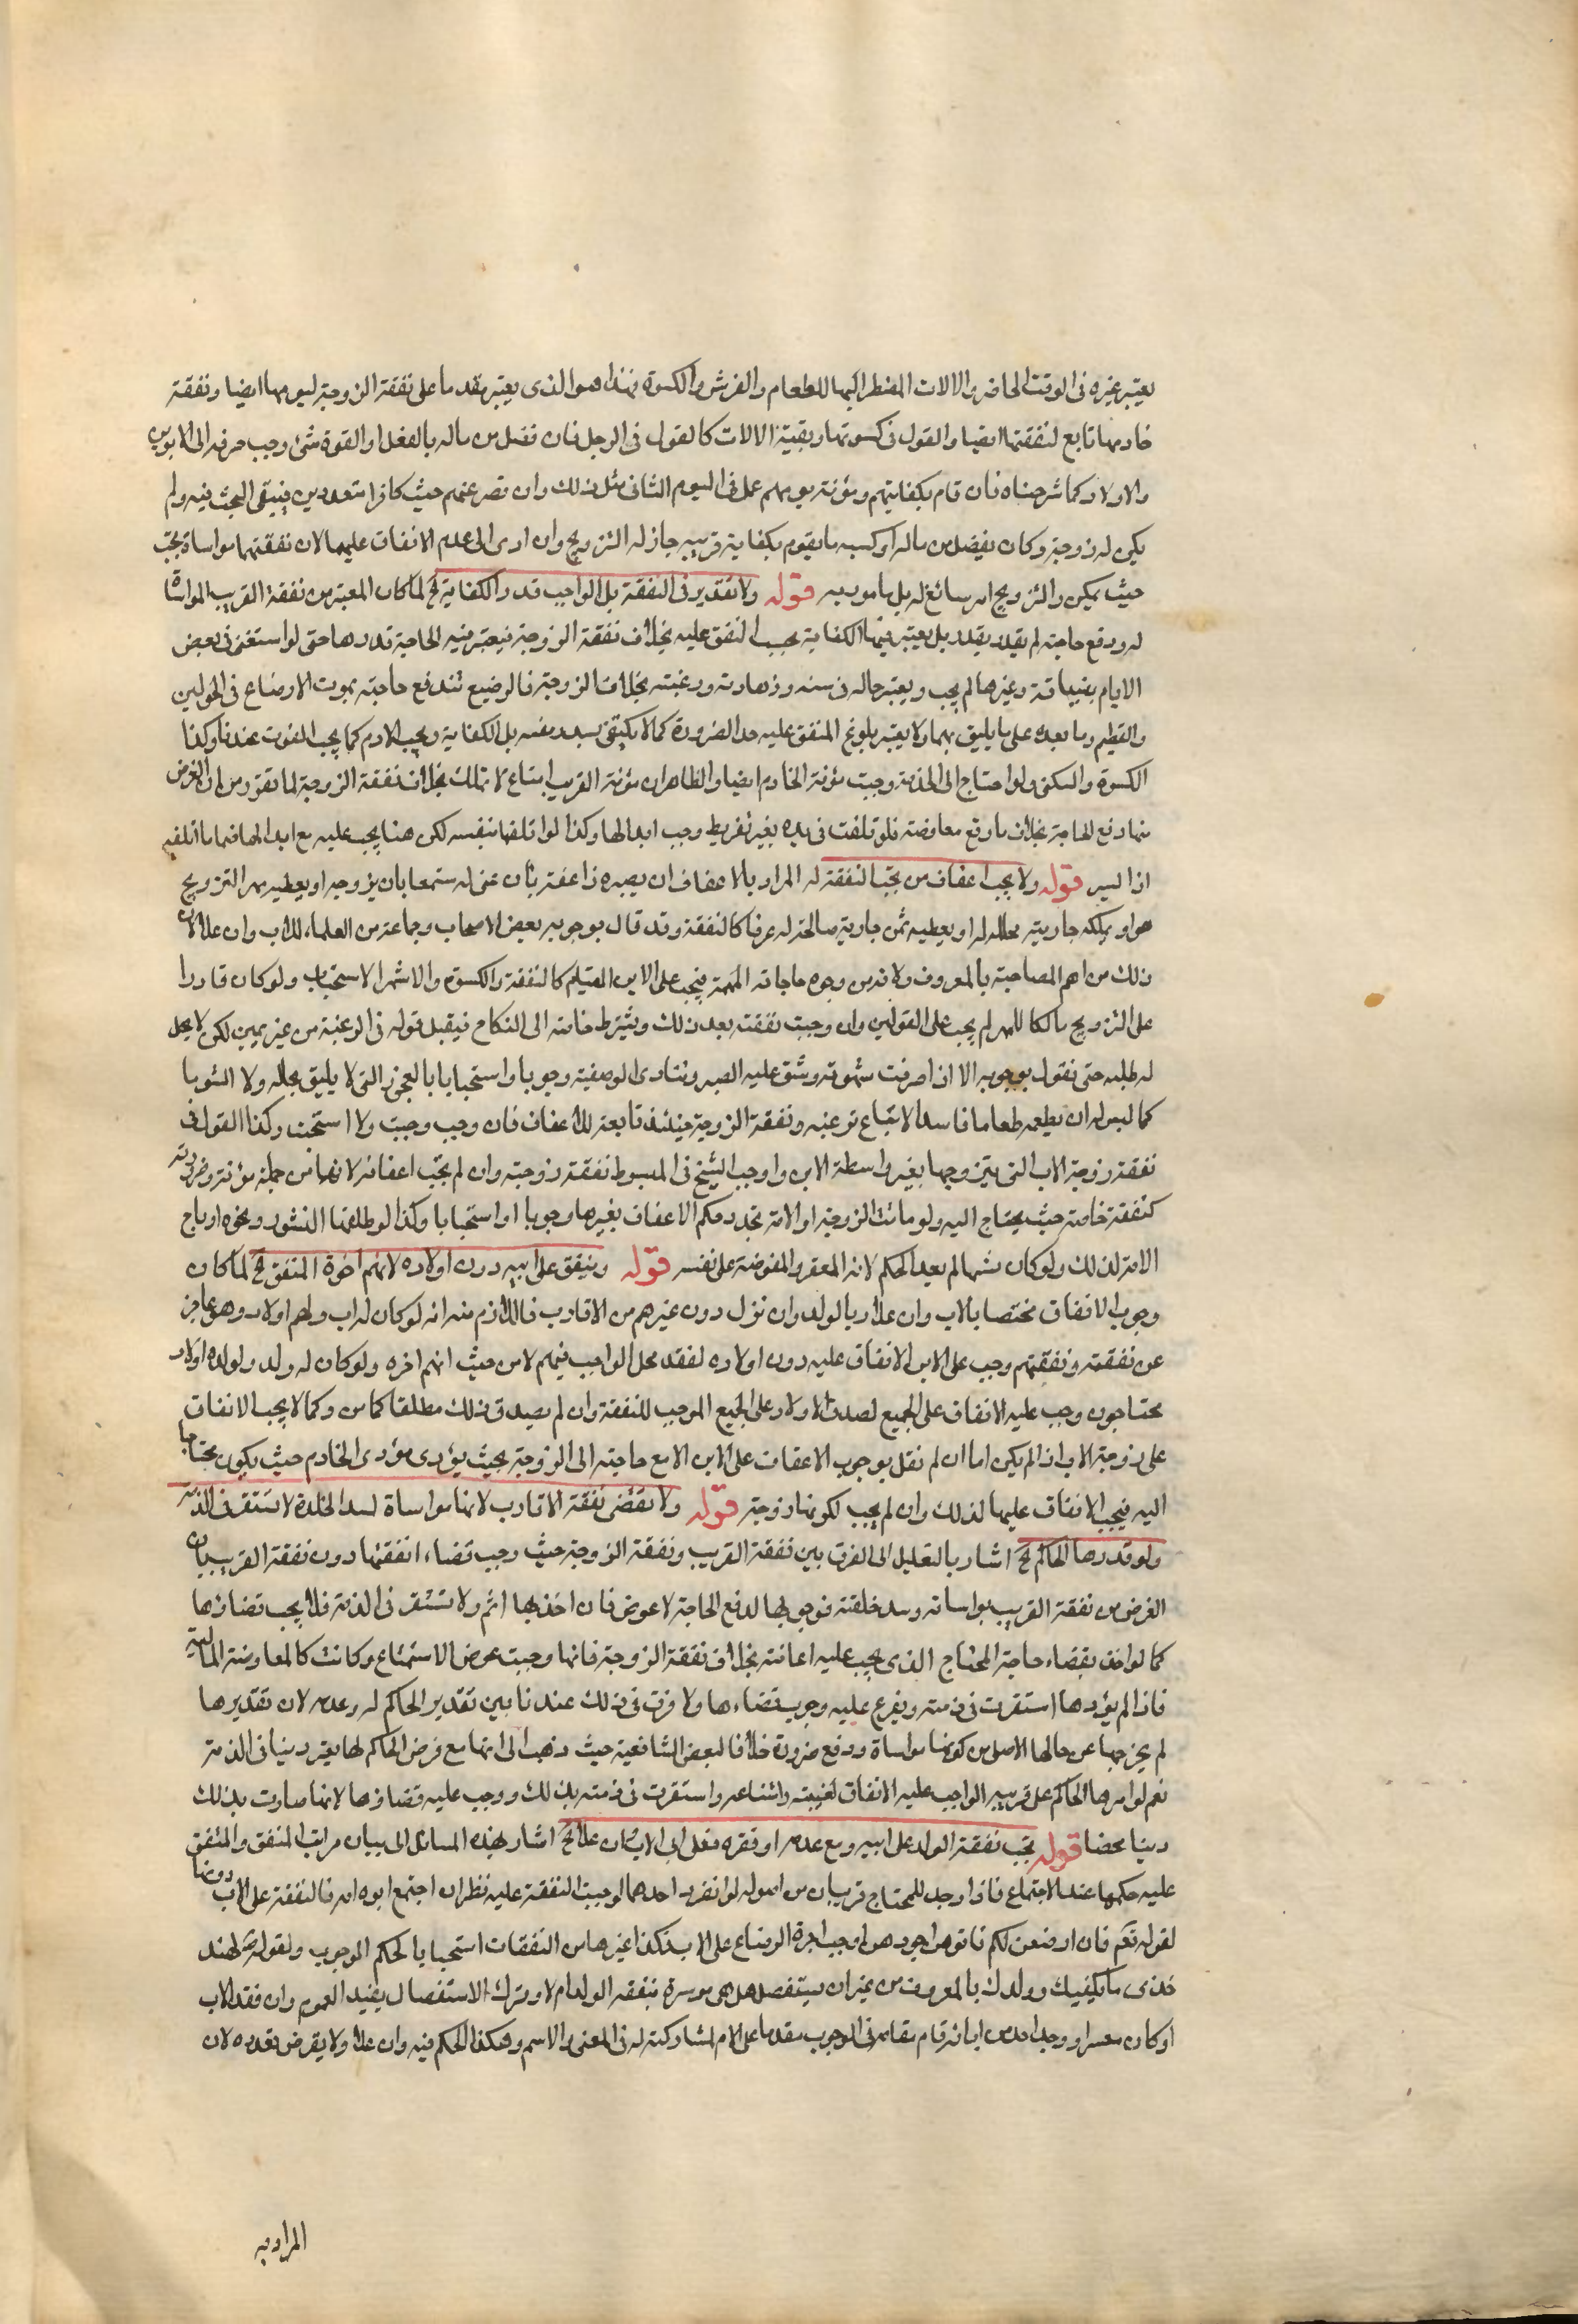 يعتبر غيره فى الوقت الحاضر والالات المضطر اليها للطعام والفرش والكسوة فهذا هو الذى يعتبر مقدما على نفقة الزوجة ليومها ايضا ونفقة
خادمها تابع لنفقتها ايضا والقول فى كسوتها وبقية الالات كالقول فى الرجل فان فضل من ماله بالفعل او القوة شئ وجب صرفه الى الابوين
والاولاد كما شرحناه فان قام بكفايتهم ومؤنة يومهم عمل فى اليوم الثانى مثل ذلك وان قصر عنهم حيث كانوا متعددين فيبقى البحث فيه ولم
يكن له زوجة وكان يفضل من ماله او كسبه ما يقوم بكفاية قريبه جاز له التزويج وان ادى الى عدم الانفاق عليهما لان نفقتهما مواساة تجب
حيث يمكن والتزويج امر سائغ له بل مامور به قوله ولا تقدير فى النفقة بل الواجب قدر الكفاية الخ لما كان المعتبر من نفقة القريب المواساة
له ودفع حاجته لم يقدر بقدر بل يعتبر فيها الكفاية بحسب المنفق عليه بخلاف نفقة الزوجة فيعتبر فيه الحاجة قدرها حتى لو استغنى فى بعض
الايام بضيافة وغيرها لم يجب ويعتبر حاله فى سنه وزهادته ورغبته بخلاف الزوجة فالرضيع تندفع حاجته بموت الارضاع فى الحولين
والفطيم وما بعده على ما يليق بهما ولا يعتبر بلوغ المنفق عليه حد الضرورة كما لا يكتفى بسد رمقه بل الكفاية ويجب الادم كما يجب القوت عندنا وكذا
الكسوة والسكنى ولو احتاج الى الخدمة وجبت مؤنة الخادم ايضا والظاهر ان مؤنة القريب امتاع لا تملك بخلاف نفقة الزوجة لما تقرر من ان الغرض
منها دفع الحاجة بخلاف ما وقع معاوضة فلو تلفت فى يده بغير تفريط وجب ابدالها وكذا لو اتلفها بنفسه لكن هنا يجب عليه مع ابدالها ضمان ما اتلفه
اذا ايسر قوله ولا يجب اعفاف من تجب النفقة له المراد بالاعفاف ان يصيره ذا عفة بان يهيئ له مستمتعا بان يزوجه او يعطيه مهر التزويج
هو او يملكه جارية يحلله له او يعطيه ثمن جارية صالحة له عرفا كالنفقة وقد قال بوجوبه بعض الاصحاب وجماعة من العلماء للاب وان علا لان
ذلك من اهم المصاحبة بالمعروف ولانه من وجوه حاجاته المهمة فيجب على الابن القيام كالنفقة والكسوة والاشهر الاستحباب ولو كان قادرا
على التزويج مالكا للمهر لم يجب على القولين وان وجبت نفقته بعد ذلك ويشترط حاجته الى النكاح فيقبل قوله فى الرغبة من غير يمين لكن لا يحل
له طلبه حتى نقول بوجوبه الا اذا صدقت شهوته وشق عليه الصبر وتتادى الوظيفة وجوبا واستحبابا بالعجز التى لا يليق بحاله ولا الشوها
كما ليس له ان يطعمه طعاما فاسدا لا تنساغ نوعته ونفقة الزوجة حينئذ تابعة للاعفاف فان وجب وجبت والا استحبت وكذا القول فى
نفقة زوجة الاب التى يتزوجها بغير واسطة الابن واوجب الشيخ فى المبسوط نفقة زوجته وان لم يجب اعفافه لانها من جملة مؤنته وضروريته
كنفقة خادمه حيث يحتاج اليه ولو ماتت الزوجة او الامة تجدد حكم الاعفاف بغيرها وجوبا او استحبابا وكذا لو طلقها النشوز ونحوه او باع
الامة لذلك ولو كان تشهيا لم يعد الحكم لانه المعفو المفوضة على نفسه قوله وينفق على ابيه دون اولاده لانهم اخوة المنفق الخ لما كان
وجوب الانفاق مختصا بالاب وان علا وبالولد وان نزل دون غيرهم من الاقارب فاللازم منه انه لو كان له اب ولهم اولاد وهو عاجز
عن نفقته ونفقتهم وجب على الابن الانفاق عليه دون اولاده لفقد محل الواجب فيهم لا من حيث انهم اخوه ولو كان له ولد ولولده اولاد
محتاجون وجب عليه الانفاق على الجميع لصدق الاولاد على الجميع الموجب للنفقة وان لم يصدق ذلك مطلقا كما مر وكما لا يجب الانفاق
على زوجة الاب اذا لم يكن اما ان لم نقل بوجوب الاعفاف على الابن الا مع حاجته الى الزوجة بحيث يؤدى مؤدى الخادم حيث يكون محتاجا
اليه فيجب الانفاق عليها لذلك وان لم يجب لكونها زوجة قوله ولا تقضى نفقة الاقارب لانها مواساة لسد الخلة لا تستقر فى الذمة
ولو قدرها الحاكم الخ اشار بالتعليل الى الفرق بين نفقة القريب ونفقة الزوجة حيث وجب قضاء نفقتها دون نفقة القريب بان
الغرض من نفقة القريب مواساته وسد خلته فوجوبها لدفع الحاجة لا عوض فان اخل بها اثم ولا تستقر فى الذمة فلا يجب قضاؤها
كما لو اخل بقضاء حاجة المحتاج الذى يجب عليه اعانته بخلاف نفقة الزوجة فانها وجبت عوض الاستمتاع وكانت كالمعاوضة المالية
فاذا لم يؤدها استقرت فى ذمته ويفرع عليه وجوب قضاءها ولا فرق فى ذلك عندنا بين تقدير الحاكم له وعدمه لان تقديرها
لم يخرجها عن حالها الاصلى من كونها مواساة ودفع ضرورة خلافا لبعض الشافعية حيث ذهب الى انها مع فرض الحاكم لها يعتبر دينا فى الذمة
نعم لو امرها الحاكم على قريبه الواجب عليه الانفاق لغيبته وامتناعه واستقرت فى ذمته بذلك ووجب عليه قضاؤها لانها صارت بذلك
دينا محضا قوله تجب نفقة الولد على ابيه ومع عدمه او فقره فعلى اب الاب وان علا الخ اشار بهذه المسائل الى بيان مراتب المنفق والمنفق
عليه حكمها عند الاجتماع فاذا وجد للمحتاج قريبان من اصوله لو انفرد احدهما لوجبت النفقة عليه نظر ان اجتمع ابوه امه فالنفقة على الاب دونها
لقوله تعم فان ارضعن لكم فاتوهن اجورهن اوجب اجرة الرضاع على الاب فكذا غيرها من النفقات استحبابا لحكم الوجوب ولقوله ص لهند
خذى ما يكفيك وولدك بالمعروف من غير ان يستفصل هل هى موسرة بنفقة الولد ام لا وترك الاستفصال يفيد العموم وان فقد الاب
او كان معسرا ووجد احد من ابائه قام مقامه فى الوجوب مقدما على الام لمشاركته له فى المعنى والاسم وهكذا الحكم فيه وان علا ولا يقرض بعده لان
المراد به